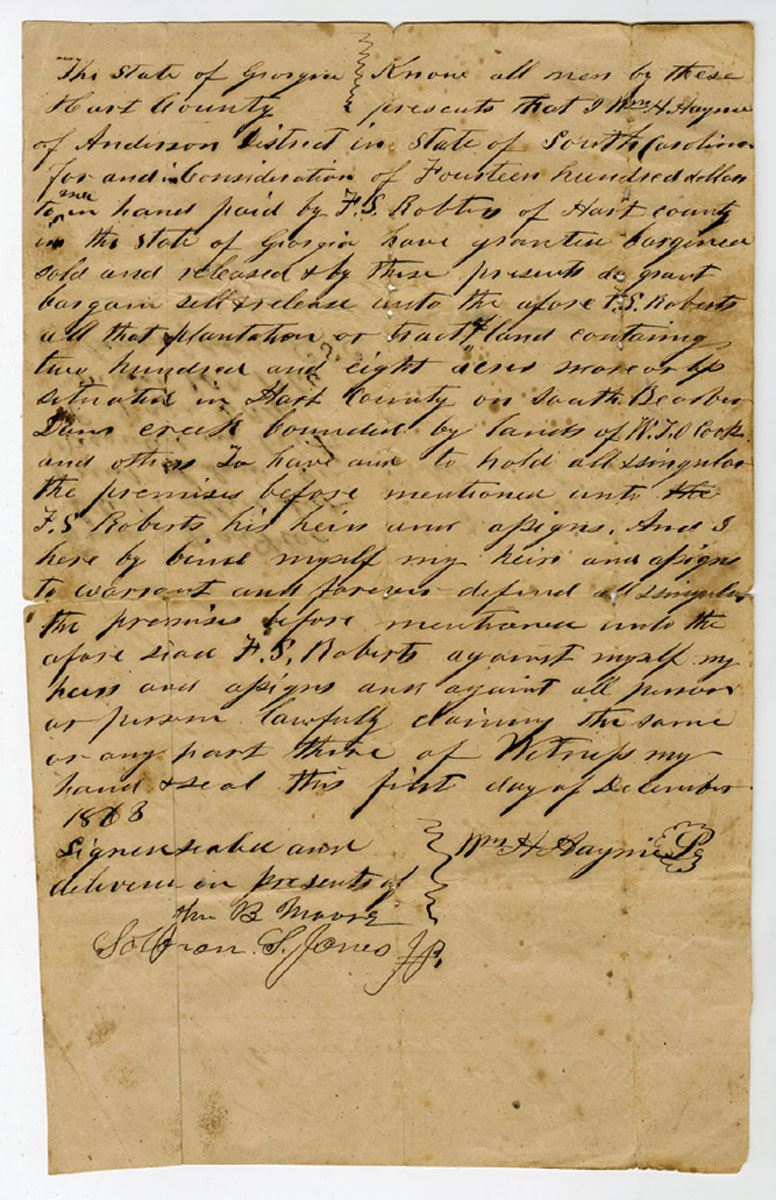 The State of Georgia } Know all men by these
Hart County } presents that I Wm H Haynie
of Anderson District in State of South Carolina
for and in Consideration of Fourteen hundred dollars
to me in hand paid by F. S. Robters of Hart county
in the State of Georgia have granted bargined
sold and released & by these presents do grant
bargain sell & release unto the afore F. S. Roberts
all that plantation or tract of land containg
two hundred and eight acres more or less
situated in Hart County on South Bearber
Dam creek bounded by lands of W. T. O Cook
and others To have and to hold all & singular
the premises before mentioned unto the
F. S Roberts his heirs and assigns. And I
here by bind myself my heirs and assigns
to warrant and forever defend all & singular
the premises before mentioned unto the
afore siad F. S. Roberts against myself my
heirs and assigns and against all person
or person lawfully claiming the same
or any part there of Witness my
hand & seal this first day of December
1863
Signed sealed and } Wm H Haynie LS
delivered in presents of
B Moore
Solomon S. Jones J P,